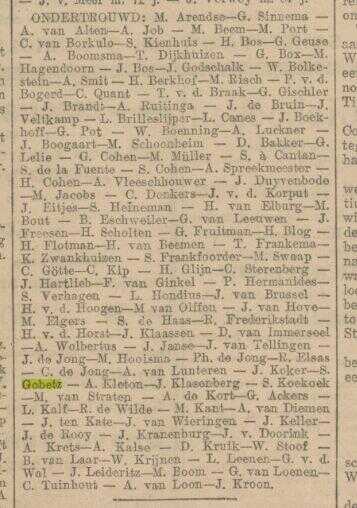 ONDERTROUWD: M. Arendse—G. Sinnema —
A. van Alten—A. Job — M. Beem—M. Port
C. van Borkulo—S. Kienhuis — H. Bos—G. Geuse
— A. Boomsma—T. Dijkhuizen — G. Box—M.
Hagendoorn — J. Bos—J. Godschalk — W. Bolke-
stein—A. Smit — H. Berkhof—M. Risch — P. v. d.
Bogerd—C. Quant — T. v. d. Braak—G. Gischler
— J. Brandt—A. Ruitinga — J. de Bruin—J.
Veltkamp — L. Brilleslijper—L. Canes — J. Boek-
hoff—G. Pot — W. Boenning—A. Luckner
J. Boogaart—M. Schoonheim — D. Bakker—G.
Lelie — G. Cohen—M. Müller — S. à Cantan—
S. de la Fuente — S. Cohen—A. Spreekmeester —
H. Cohen—A. Vleeschhouwer — J. Duyvenbode
—M. Jacobs — C. Donkers—J. v. d. Korput —
J. Eitjes—S. Heineman — H. van Elburg—M.
Bout — B. Eschweiler—G. van Leeuwen — J.
Freesen—H. Scholten — G. Fruitman—H. Blog
H. Flotman—H. van Beemen — T. Frankema—
K. Zwankhuizen — S. Frankfoorder—M. Swaap —
C. Götte—C. Kip — H. Glijn—C. Sterenberg
J. Hartlieb—F. van Ginkel — P. Hermanides—
S. Verhagen — L. Hondius—J. van Brussel —
H. v. d. Hoogen—M van Olffen — J. van Hove—
M. Elgers — S. de Haas—R. Frederikstadt —
H. v. d. Horst—J. Klaassen — D. van Immerseel
—A. Wolbertus — J. Janse—J. van Tellingen
J. de Jong—M. Hooisma — Ph. de Jong—R. Elsas
— C. de Jong—A. van Lunteren — J. Koker—S.
Gobetz — A. Kleton—J. Klasenberg — S. Koekoek
—M. van Straten — A. de Kort—G. Ackers —
L. Kalf—R. de Wilde — M. Kant—A. van Diemen
— J. ten Kate—J. van Wieringen — J. Keller—
J. de Rooy — J. Kranenburg—J. v. Doorink
A. Krets—A. Kalse — D. Kruik—W. Stoof —
B. van Laar—W. Krijnen — L. Leenen—G. v. d.
Wal — J. Leideritz—M. Boom — G. van Loenen—
C. Tuinhout — A. van Loon—J. Kroon.